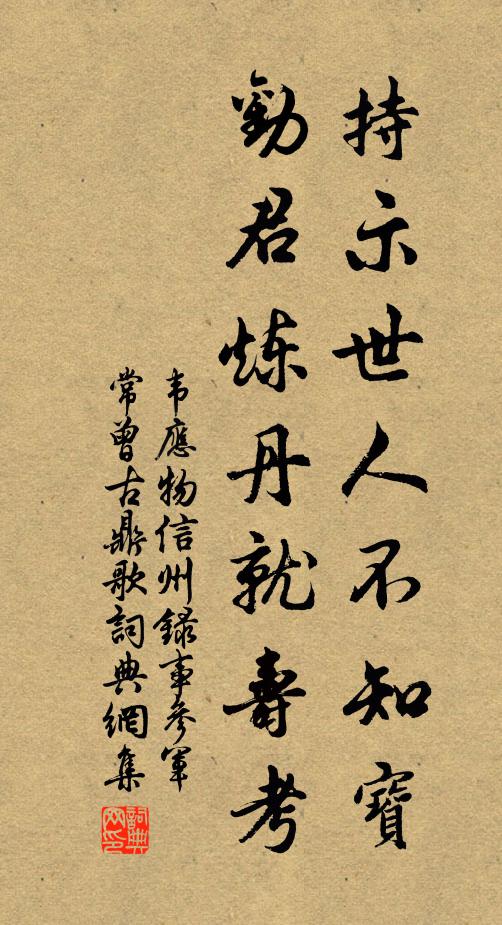 持示世人不知寶
勸君炼丹就壽考
韦應物信州録事參軍
常曾古鼎歌詞典網集
詞典
网印